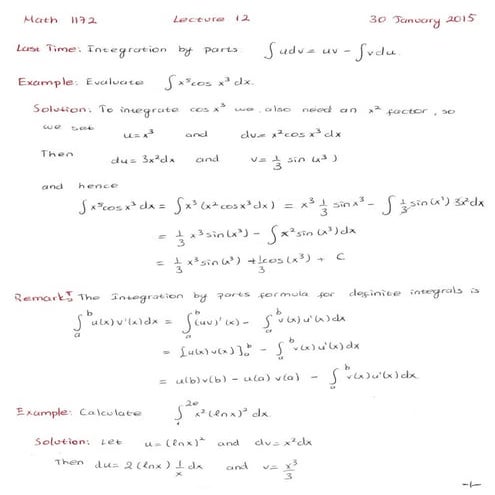 Math 1172 Lecture 12 30 January 2015
Last Time: Integration by parts. ∫udv = uv - ∫vdu.
Example: Evaluate ∫x⁵cos x³dx.
Solution: To integrate cos x³ we also need an x² factor, so
we set u=x³ and dv=x²cos x³dx
Then du=3x²dx and v=⅓ sin(x³)
and hence
∫x⁵cos x³dx = ∫x³(x²cos x³dx) = x³ ⅓ sin x³ - ∫⅓ sin(x³) 3x²dx
= ⅓ x³sin(x³) - ∫x²sin(x³)dx
= ⅓ x³sin(x³) + ⅓cos(x³) + C
Remark: The Integration by parts formula for definite integrals is
∫ₐᵇ u(x)v'(x)dx = ∫ₐᵇ (uv)'(x) - ∫ₐᵇ v(x)u'(x)dx
= [u(x)v(x)]ₐᵇ - ∫ₐᵇ v(x)u'(x)dx
= u(b)v(b) - u(a)v(a) - ∫ₐᵇ v(x)u'(x)dx
Example: Calculate ∫₁²ᵉ x²(lnx)² dx
Solution: Let u=(lnx)² and dv=x²dx
Then du=2(lnx) 1/x dx and v=x³/3
-1-